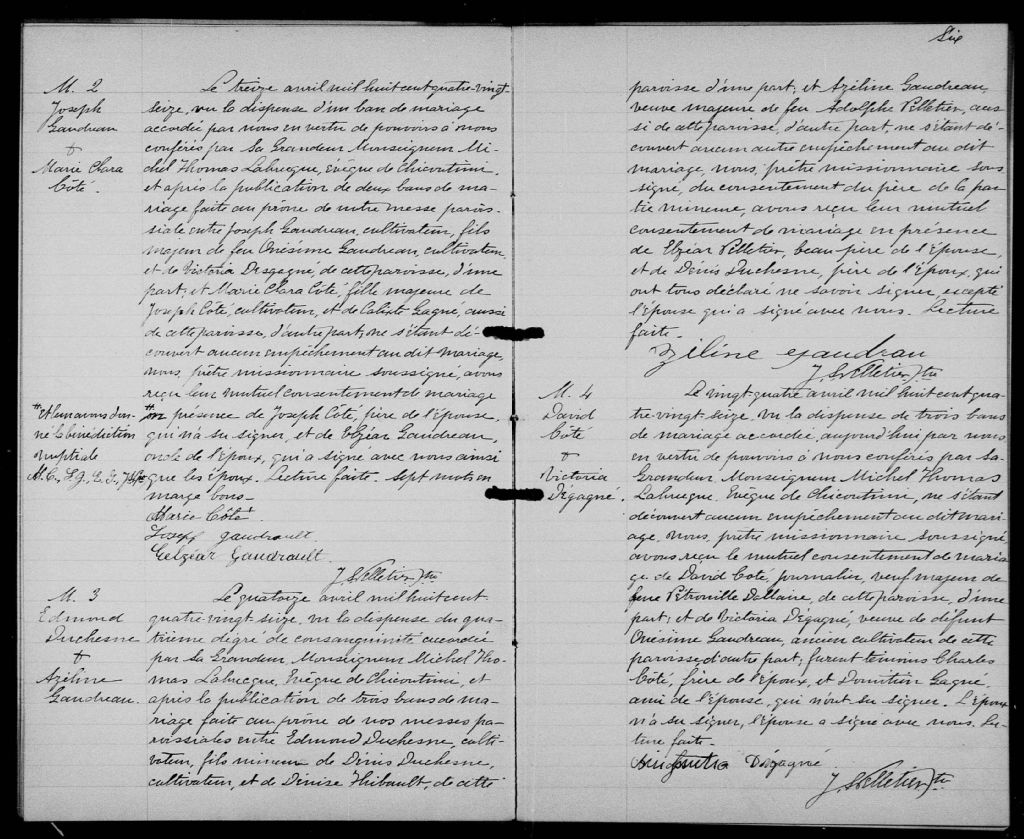 M. 2
Joseph
Gaudreau
&
Marie Clara
Côté.
Le treize avril mil huit cent quatre-vingt-
seize, vu la dispense d'un ban de mariage
accordée par nous en vertu de pouvoirs à nous
conférés par Sa Grandeur Monseigneur Mi-
chel Thomas Labrecque, Evêque de Chicoutimi,
et après la publication de deux bans de ma-
riage faite au prône de notre messe parois-
siale entre Joseph Gaudreau, cultivateur, fils
majeur de feu Onésime Gaudreau, cultivateur,
et de Victoria Desgagné, de cette paroisse, d'une
part; et Marie Clara Côté, fille majeure de
Joseph Côté, cultivateur, et de Calixte Gagné, aussi
de cette paroisse, d'autre part; ne s'étant dé-
couvert aucun empêchement au dit mariage,
nous, prêtre missionnaire soussigné, avons
reçu leur mutuel consentement de mariage
en présence de Joseph Côté, père de l'épouse,
qui n'a su signer, et de Elzéar Gaudreau,
oncle de l'Epoux, qui a signé avec nous ainsi
que les époux. Lecture faite. Sept mots en
marge bons-
et leur avons don-
né la bénédiction
nuptiale
M. C., J. G., E. G., J. S. P. ptre
Marie Côté
Joseph gaudrault
Eelzéar Gaudrault
J. S. Pelletier Ptre
M. 3
Edmond
Duchesne
&
Azéline
Gaudreau.
Le quatorze avril mil huit cent
quatre-vingt seize, vu la dispense du qua-
trième dégré de consanguinité accordée
par Sa Grandeur Monseigneur Michel Tho-
mas Labrecque, Evêque de Chicoutimi, et
après la publication de trois bans de ma-
riage faite au prône de nos messes pa-
roissiales entre Edmond Duchesne, culti-
vateur, fils mineur de Dénis Duchesne,
cultivateur, et de Dénise Thibault, de cette
Six
paroisse d'une part; et Azéline Gaudreau,
veuve majeure de feu Adolphe Pelletier, aus-
si de cette paroisse, d'autre part, ne s'étant dé-
couvert aucun autre empêchement au dit
mariage, nous, prêtre missionnaire sous
signé, du consentement du père de la par
tie mineure, avons reçu leur mutuel
consentement de mariage en présence
de Elzéar Pelletier, beau père de l'Epouse,
et de Dénis Duchesne, père de l'Epoux, qui
ont tous déclaré ne savoir signer, excepté
l'épouse qui a signé avec nous. Lecture
faite.
Azéline gaudreau
J. S. Pelletier Ptre
M. 4
David
Côté
&
Victoria
Dégagné.
Le vingt-quatre avril mil huit cent qua-
tre-vingt-seize, vu la dispense de trois bans
de mariage accordée aujourd'hui par nous
en vertu de pouvoirs à nous conférés par Sa
Grandeur Monseigneur Michel Thomas
Labrecque, Evêque de Chicoutimi, ne s'étant
découvert aucun empêchement au dit mari-
age, nous, prêtre missionnaire soussigné
avons reçu le mutuel consentement de maria-
ge de David Coté, journalier, veuf majeur de
feue Pétronille Dallaire, de cette paroisse, d'une
part; et de Victoria Dégagné, veuve de défunt
Onésime Gaudreau, ancien cultivateur de cette
paroisse d'autre part; furent témoins Charles
Coté, frère de l'Epoux, et Domitien Gagné,
ami de l'épouse, qui n'ont su signer. L'Epoux
n'a su signer, l'épouse a signé avec nous. Lec-
ture faite.
Dégagné
J. S. Pelletier Ptre